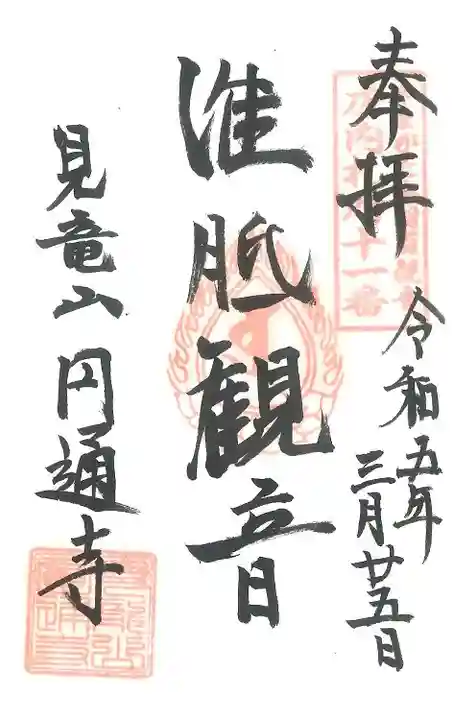 奉拝
令和五年
三月廿五日
准胝観音
見竜山 円通寺